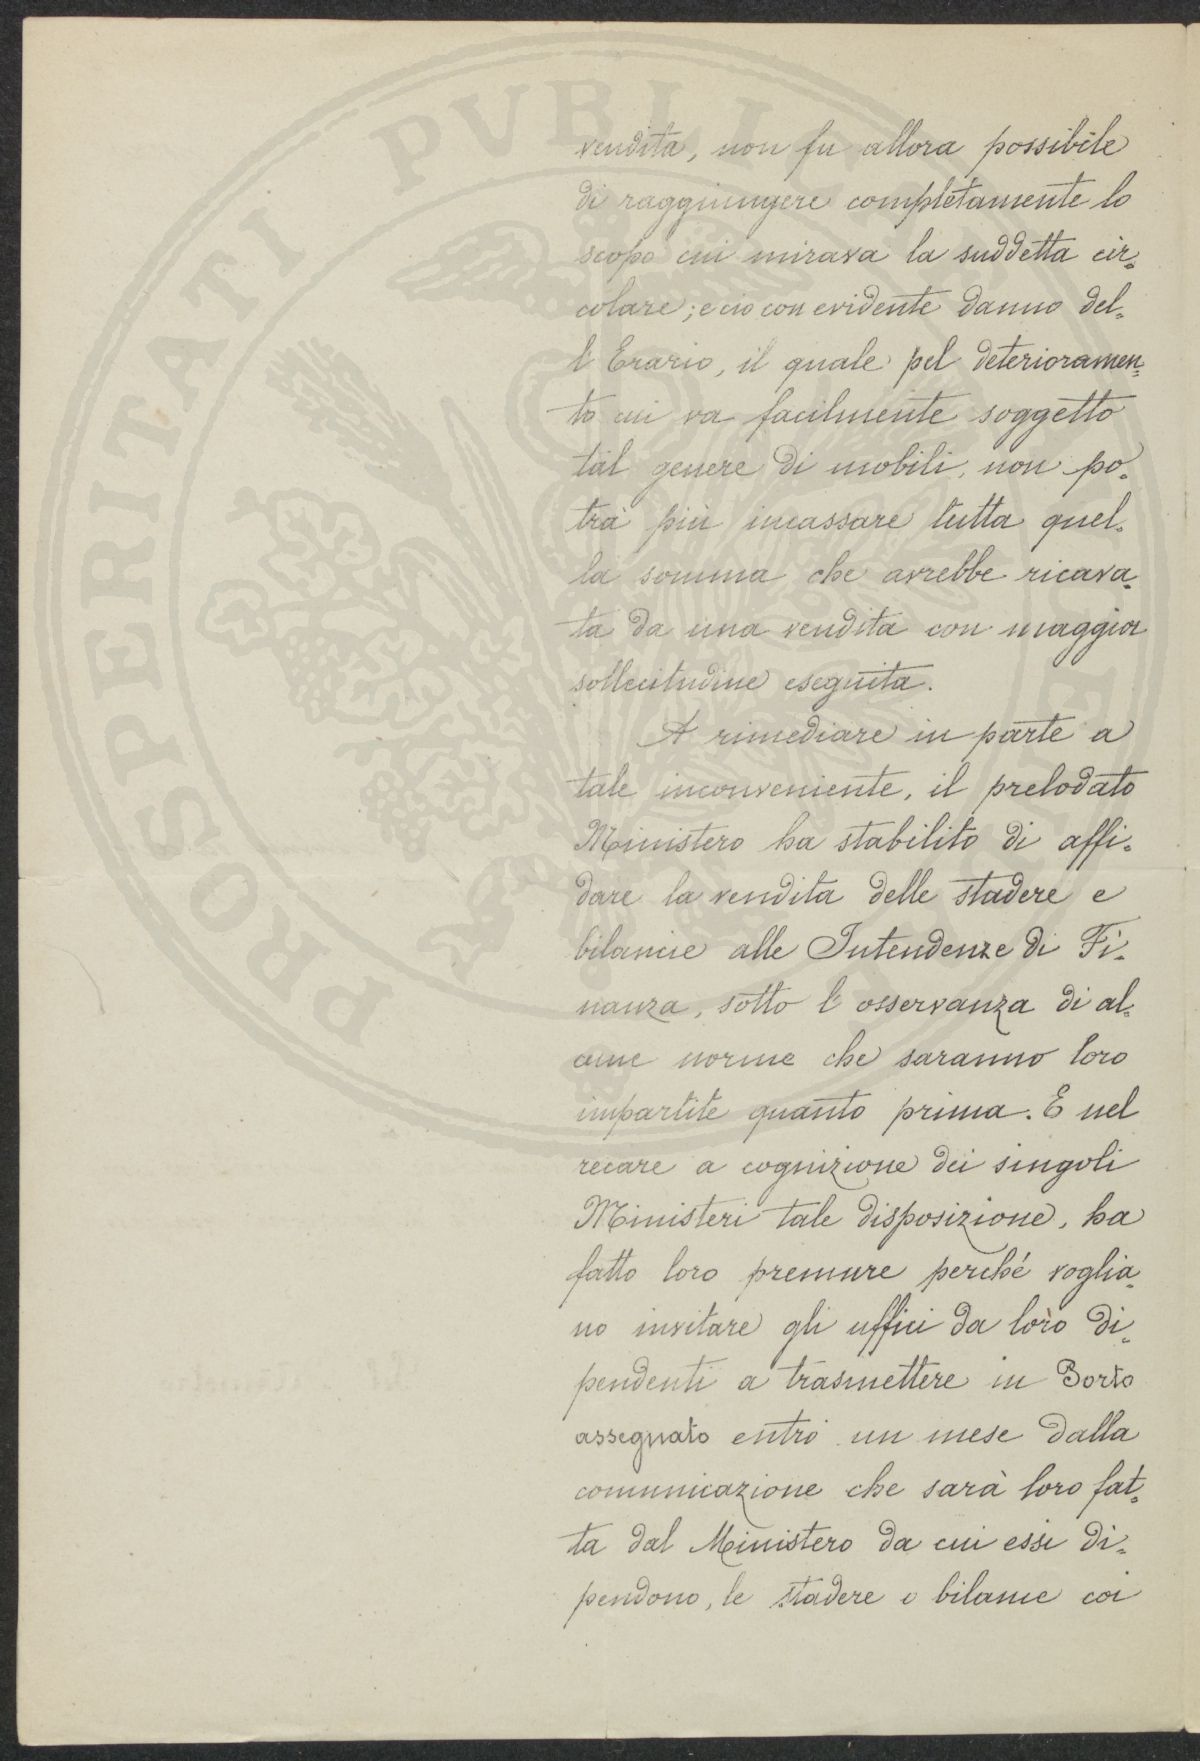 vendita, non fu allora possibile
di raggiungere completamente lo
scopo cui mirava la suddetta cir=
colare; e ciò con evidente danno del=
l'Erario, il quale pel deterioramen=
to cui va facilmente soggetto
tal genere di mobili, non po=
trà più incassare tutta quel=
la somma che avrebbe ricava=
ta da una vendita con maggior
sollecitudine eseguita.
A rimediare in parte a
tale inconveniente, il prelodato
Ministero ha stabilito di affi=
dare la vendita delle stadere e
bilancie alle Intendenze di Fi=
nanza, sotto l'osservanza di al=
cune norme che saranno loro
impartite quanto prima. E nel
recare a cognizione dei singoli
Ministeri tale disposizione, ha
fatto loro premure perché voglia=
no invitare gli uffici da loro di=
pendenti a trasmettere in Porto
assegnato entro un mese dalla
comunicazione che sarà loro fat=
ta dal Ministero da cui essi di=
pendono, le stadere o bilance coi
PROSPERITATI PVBLIC